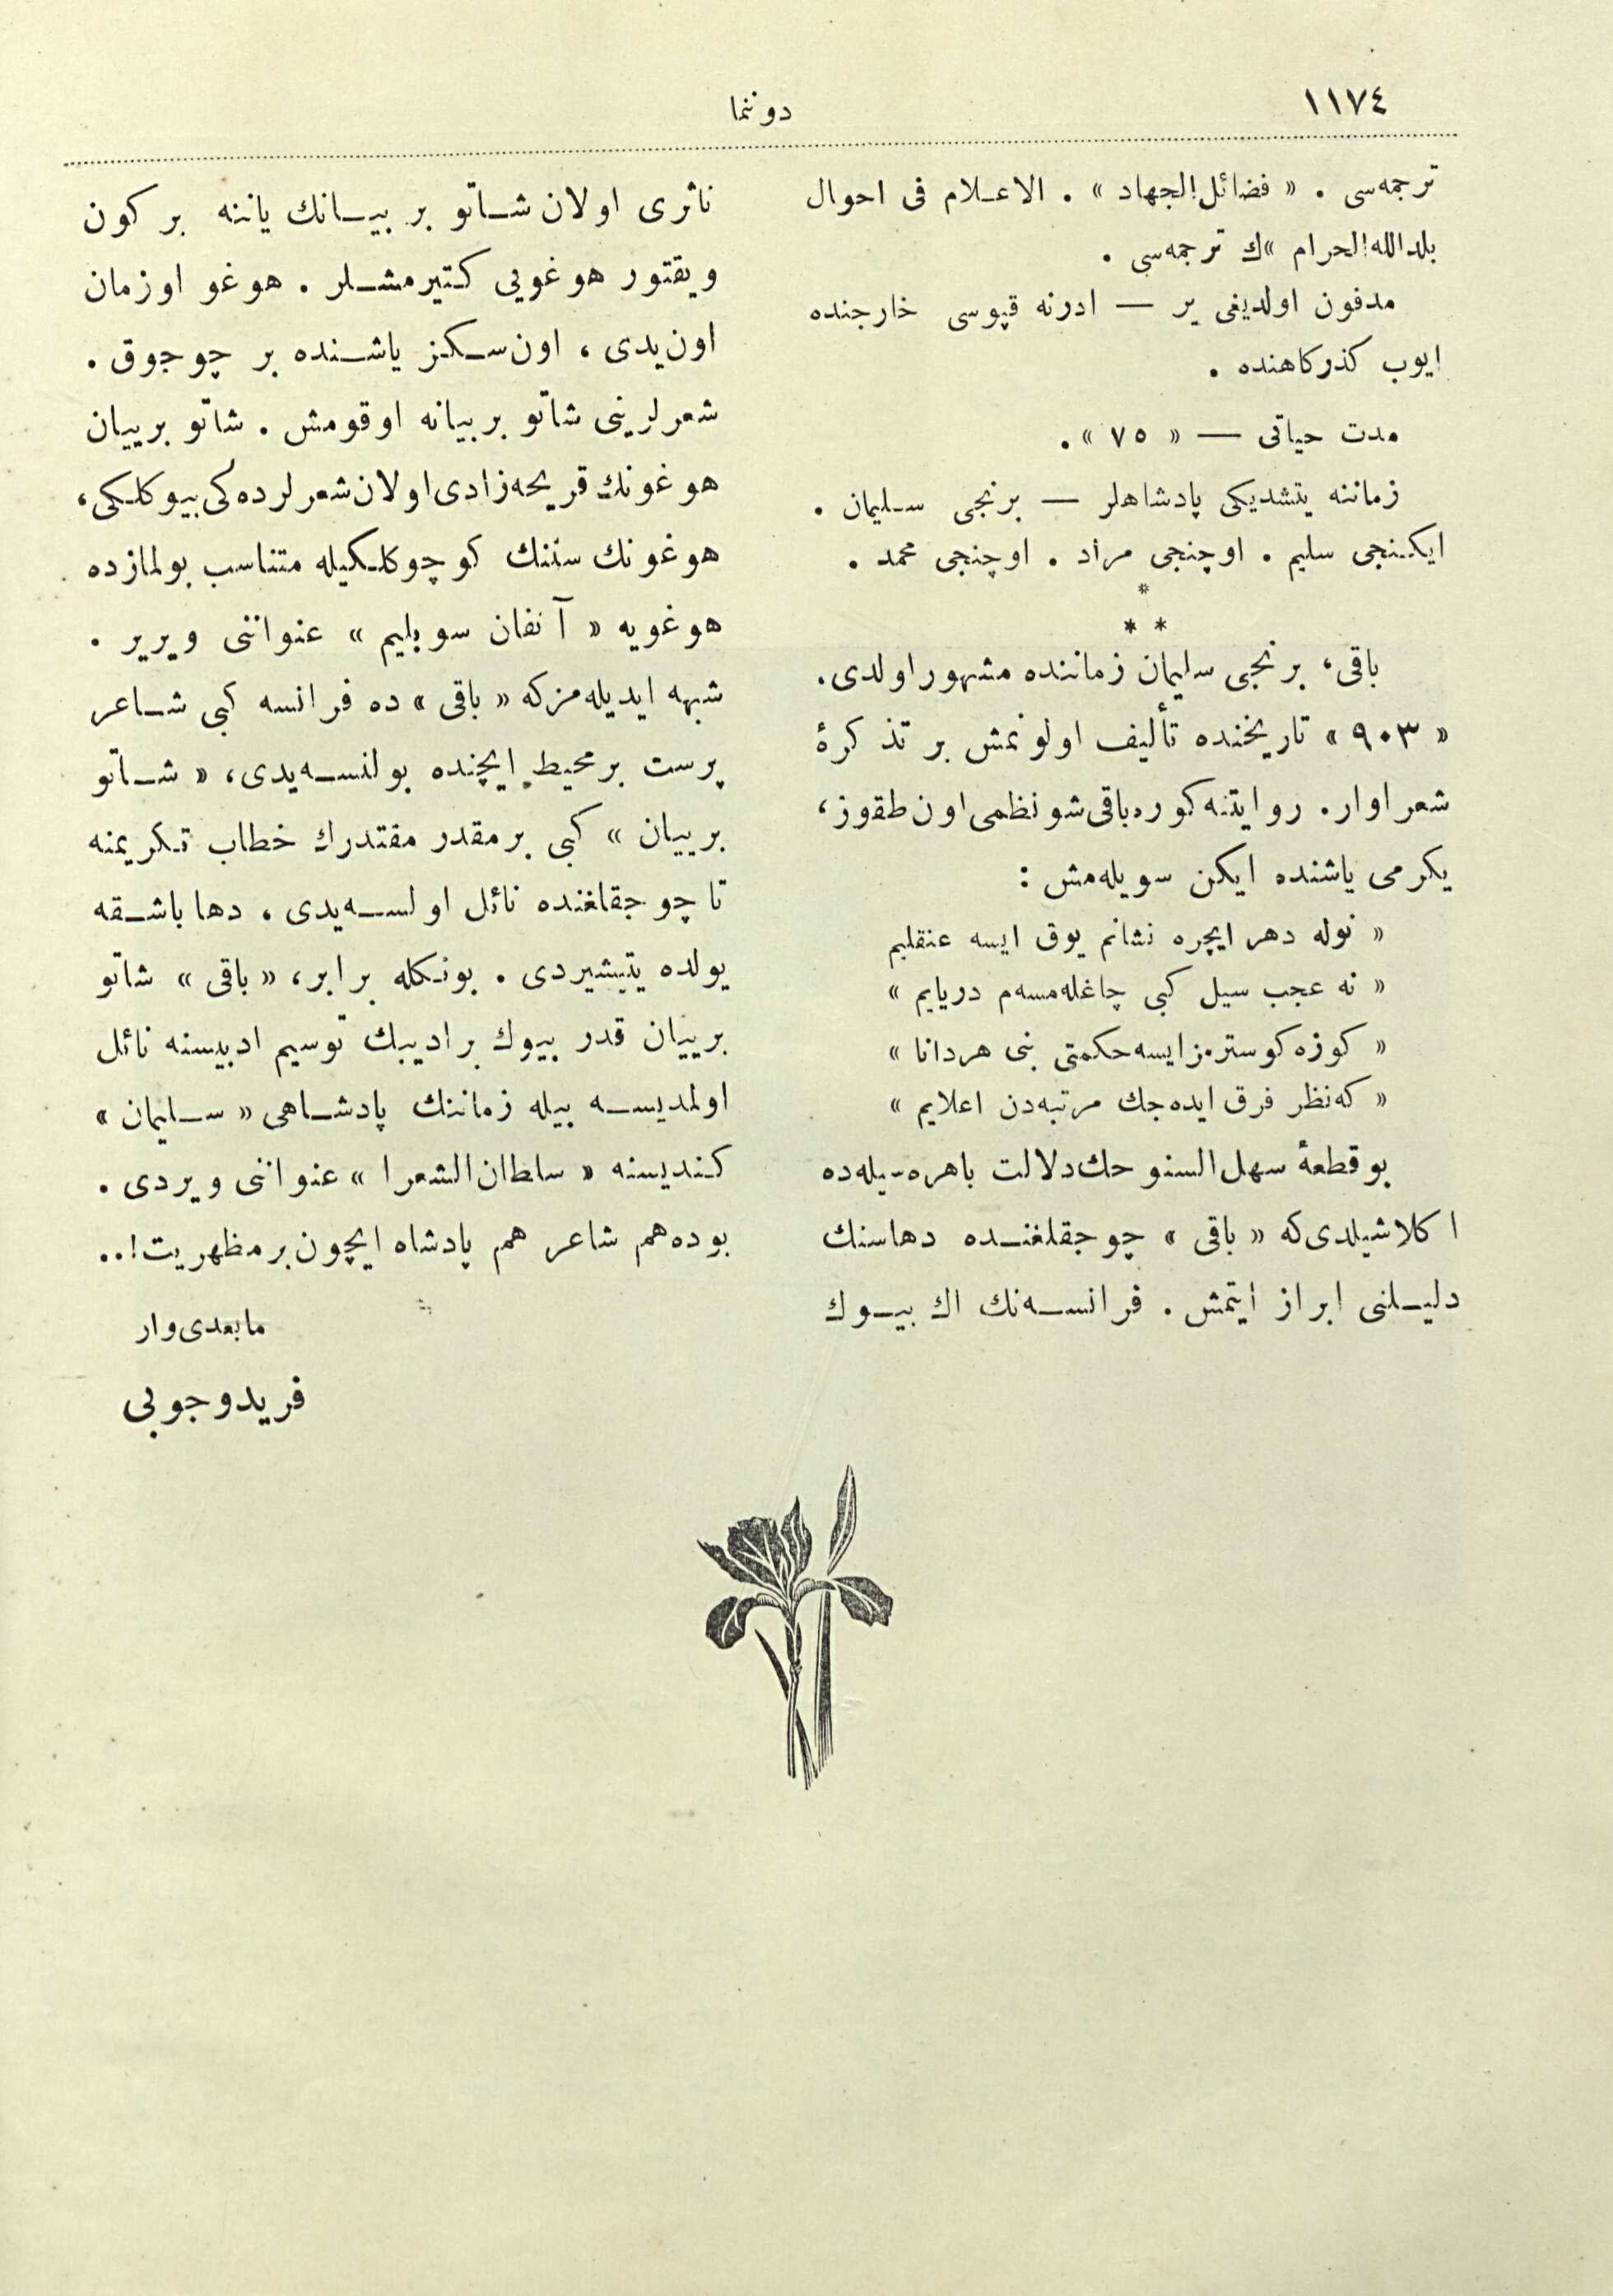 ١١٧٤
دوننما
ترجمه‌سی . « فضائل‌الجهاد » . الاعلام فی احوال
بلدالله‌الحرام »ك ترجمه‌سی .
مدفون اولدیغی یر — ادرنه قپوسی خارجنده
ایوب كذركاهنده .
مدت حیاتی — « ٧٥ » .
زماننه یتشدیكی پادشاهلر — برنجی سلیمان .
ایكنجی سلیم . اوچنجی مراد . اوچنجی محمد .
*
* *
باقی، برنجی سلیمان زماننده مشهور اولدی .
« ٩٠٣ » تاریخنده تألیف اولونمش بر تذكرهٔ
شعرا وار . روایتنه كوره باقی شو نظمی اون طقوز،
یكرمی یاشنده ایكن سویله‌مش :
« نوله دهر ایچره نشانم یوق ایسه عنقایم
« نه عجب سیل كبی چاغله‌مسه‌م دریایم »
« كوزه كوسترمز ایسه حكمتی بنی هر دانا »
« كه نظر فرق ایده‌جك مرتبه‌دن اعلایم »
بو قطعهٔ سهل‌السنوحك دلالت باهره‌سیله‌ده
اكلاشیلدی‌كه « باقی » چوجقلغنده دهاسنك
دلیلنی ابراز ایتمش . فرانسه‌نك اك بیوك
ناثری اولان شاتو بر بیانك یاننه بر كون
ویقتور هوغویی كتیرمشلر . هوغو او زمان
اون‌یدی ، اون‌سكز یاشنده بر چوجوق .
شعرلرینی شاتو بربیانه اوقومش . شاتو برییان
هوغونك قریحه‌زادی اولان شعرلرده‌كی بیوكلكی،
هوغونك سننك كوچوكلكیله متناسب بولمازده
هوغویه « آنفان سوبلیم » عنواننی ویریر .
شبهه ایدیله‌مزكه « باقی » ده فرانسه كبی شاعر
پرست بر محیط ایچنده بولنسه‌یدی، « شاتو
برییان » كبی بر مقدر مقتدرك خطاب تكریمنه
تا چوجقلغنده نائل اولسه‌یدی ، دها باشقه
یولده یتیشیردی . بونكله برابر، « باقی » شاتو
برییان قدر بیوك بر ادیبك توسیم ادبیسنه نائل
اولمدیسه بیله زماننك پادشاهی « سلیمان »
كندیسنه « سلطان‌الشعرا » عنواننی ویردی .
بوده هم شاعر هم پادشاه ایچون بر مظهریت!..
مابعدی‌وار
فرید وجوبی